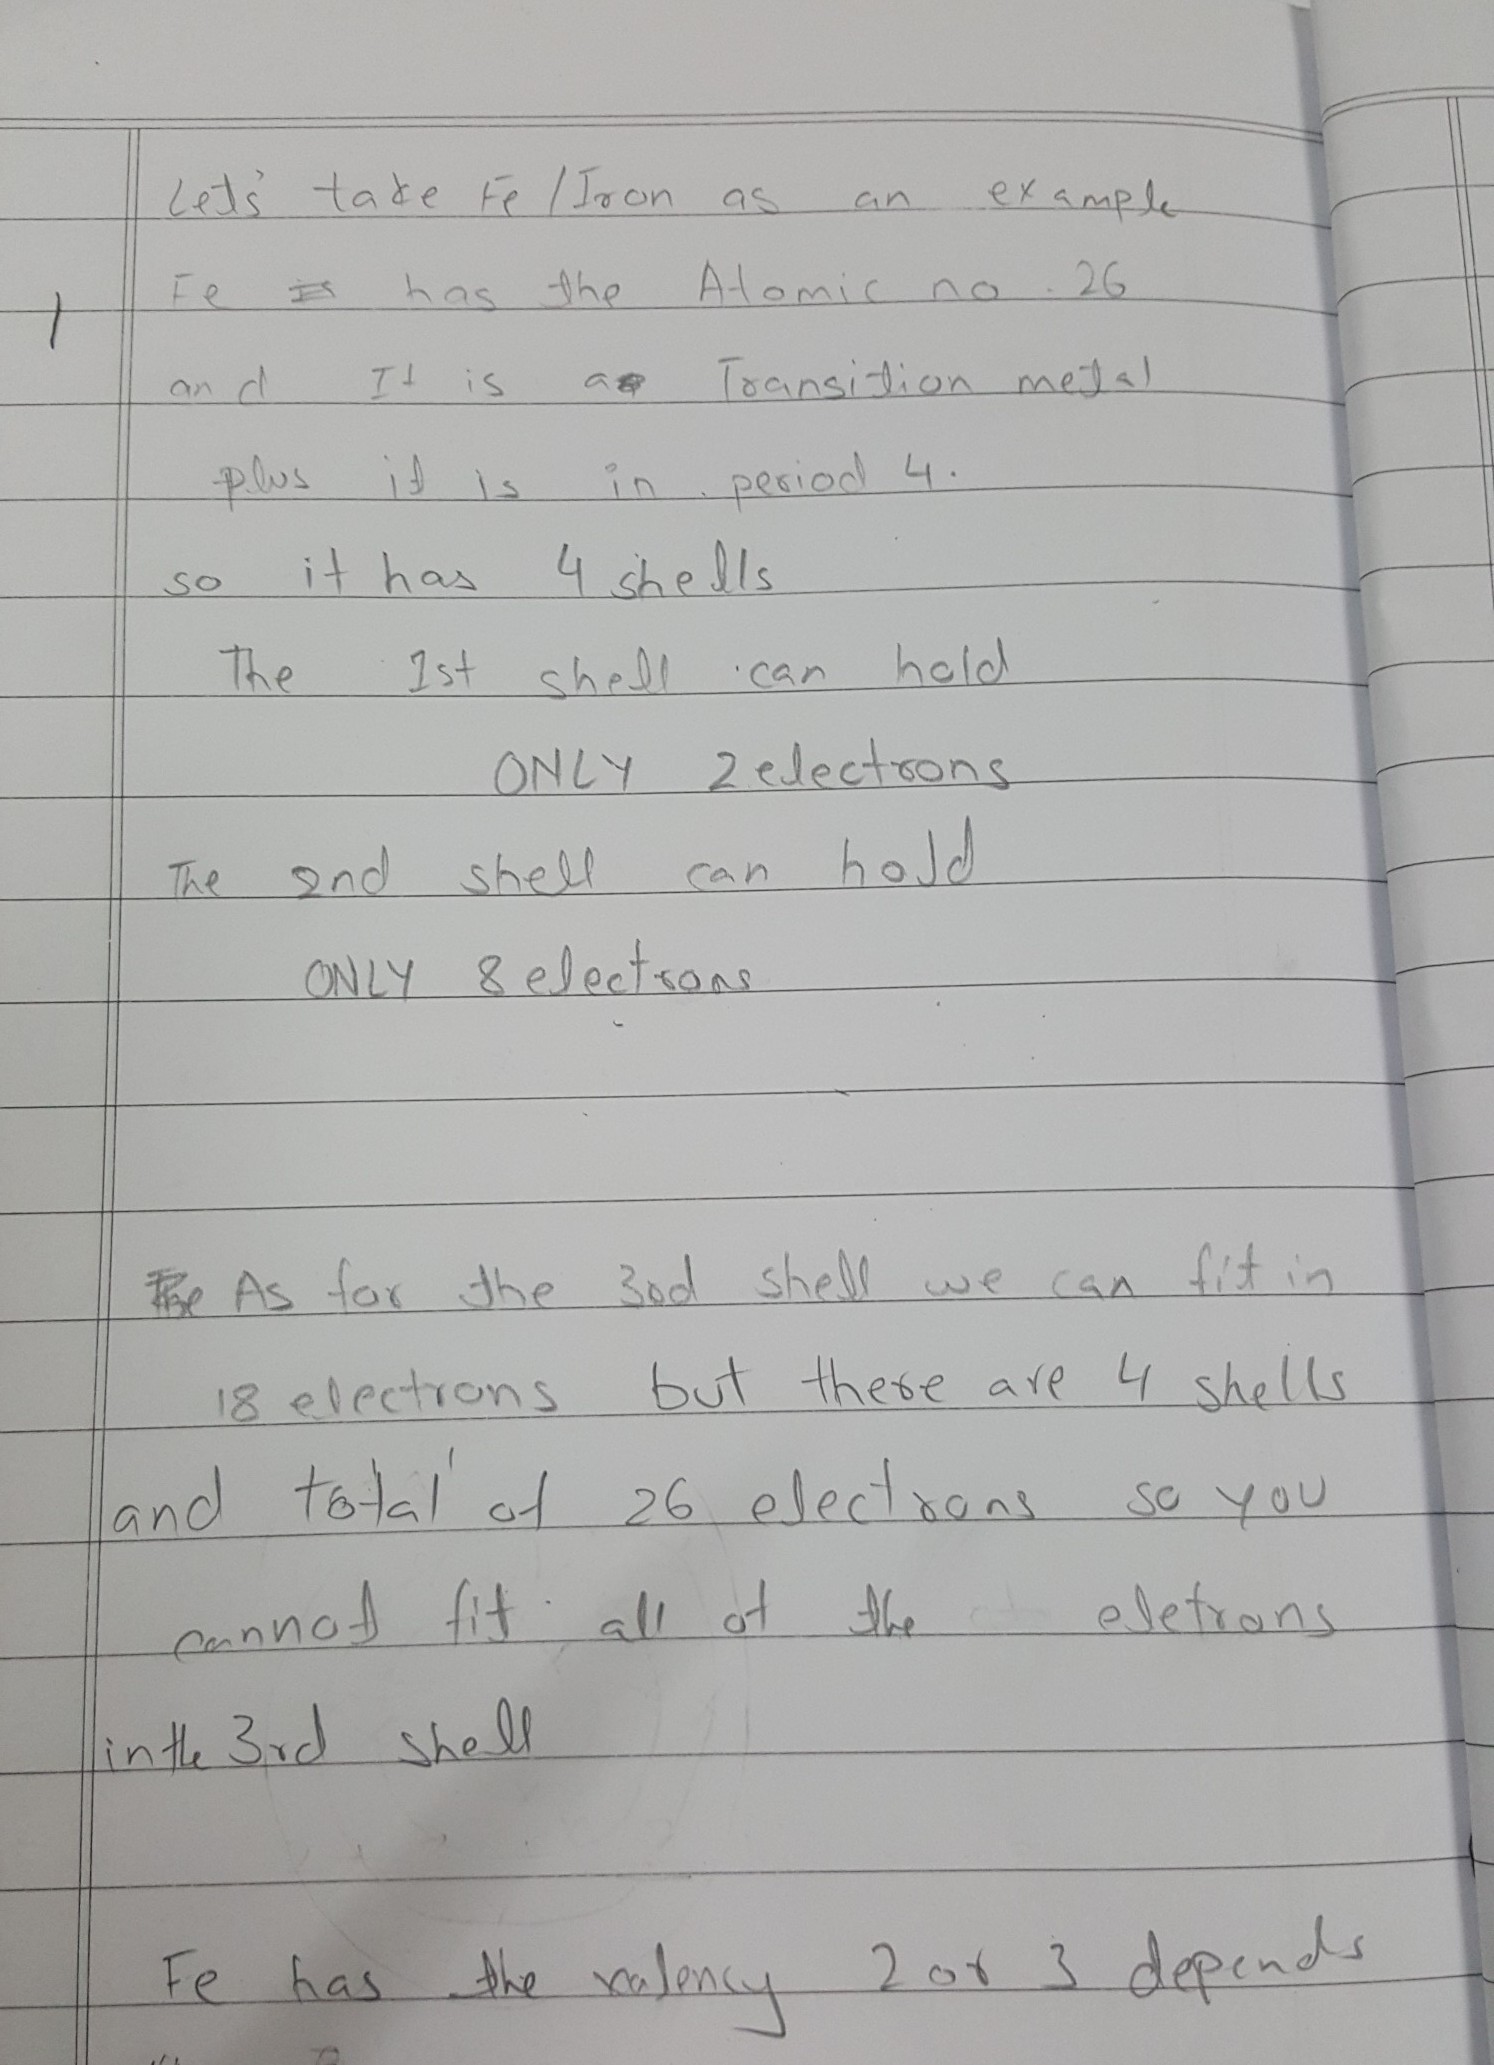 Let's take Fe / Iron as an example
Fe has the Atomic no. 26
and It is a Transition metal
plus it is in period 4.
so it has 4 shells
The 1st shell can hold
ONLY 2 electrons
The 2nd shell can hold
ONLY 8 electrons
1
As for the 3rd shell we can fit in
18 electrons but there are 4 shells
and total of 26 electrons so you
cannot fit all of the eletrons
in the 3rd shell
Fe has the valency 2 or 3 depends